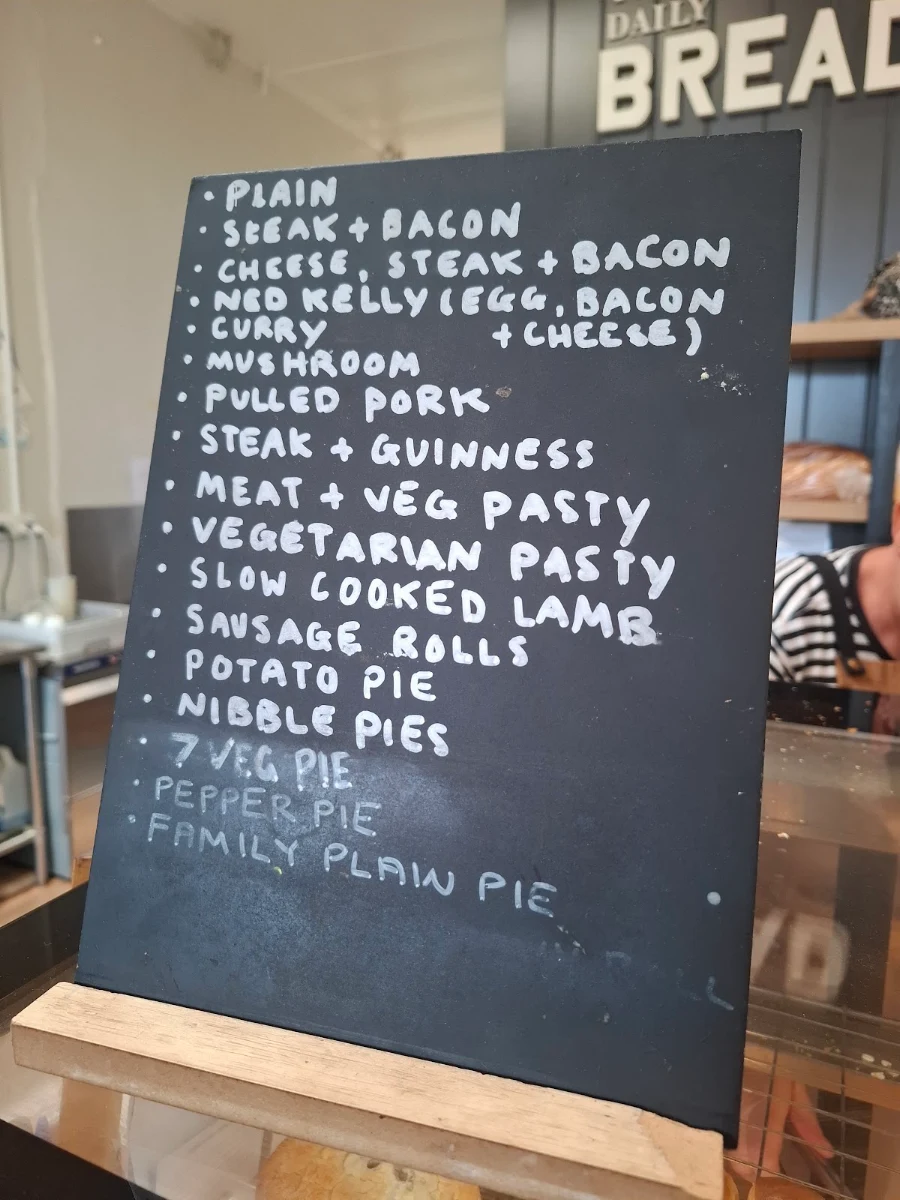 DAILY
BREAD
• PLAIN
• STEAK + BACON
• CHEESE, STEAK + BACON
• NED KELLY (EGG, BACON
+ CHEESE)
• CURRY
• MUSHROOM
• PULLED PORK
• STEAK + GUINNESS
• MEAT + VEG PASTY
• VEGETARIAN PASTY
• SLOW COOKED LAMB
• SAUSAGE ROLLS
• POTATO PIE
• NIBBLE PIES
• 7 VEG PIE
• PEPPER PIE
• FAMILY PLAIN PIE